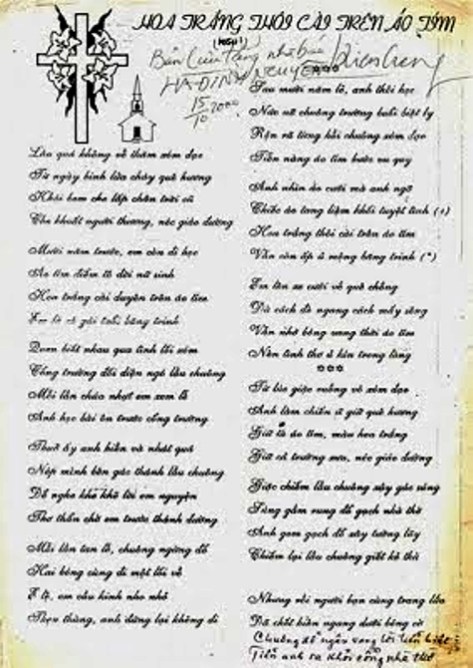 HOA TRẮNG THÔI CÀI TRÊN ÁO TÍM
Bản
nhà báo
Kiên Giang
HÀ ĐÌNH NGUYÊN
15
10 2000
Lâu quá không về thăm xóm đạo
Từ ngày binh lửa cháy quê hương
Khói bom che lấp chân trời cũ
Che khuất người thương, nóc giáo đường
Mười năm trước, em còn đi học
Áo tím điểm tô đời nữ sinh
Hoa trắng cài duyên trên áo tím
Em là cô gái tuổi băng trinh
Quen biết nhau qua tình lối xóm
Cổng trường đối diện ngó lầu chuông
Mỗi lần chúa nhựt em xem lễ
Anh học bài ôn trước cổng trường
Thuở ấy anh hiền và nhát quá
Nép mình bên gác thánh lầu chuông
Để nghe khe khẽ lời em nguyện
Thơ thẩn chờ em trước thánh đường
Mỗi lần tan lễ, chuông ngừng đổ
Hai bóng cùng đi một lối về
E lệ, em cầu kinh nho nhỏ
Thẹn thùng, anh đứng lại không đi
Sau mười năm lẻ, anh thôi học
Nức nở chuông trường buổi biệt ly
Rộn rã từng hồi chuông xóm đạo
Tiễn nàng áo tím bước vu quy
Anh nhìn áo cưới mà anh ngỡ
Chiếc áo tang liệm khối tuyệt tình (+)
Hoa trắng thôi cài trên áo tím
Vẫn còn ấp ủ mộng băng trinh (*)
Em lên xe cưới về quê chồng
Dù cách đò ngang cách mấy sông
Vẫn nhớ bóng vang thời áo tím
Nên tình thơ ủ kín trong lòng
Từ lúc giặc ruồng vô xóm đạo
Anh làm chiến sĩ giữ quê hương
Giữ là áo tím, màu hoa trắng
Giữ cả trường xưa, nóc giáo đường
Giặc chiếm lầu chuông xây gác súng
Súng gầm rung đổ gạch nhà thờ
Anh gom gạch đổ xây tường lũy
Chiếm lại lầu chuông giết kẻ thù
Nhưng rồi người bạn cùng trang lứa
Đã chết hiên ngang dưới bóng cờ
Chuông đổ ngân vang hồi tiễn biệt
Tiễn anh ra khỏi cổng nhà thờ